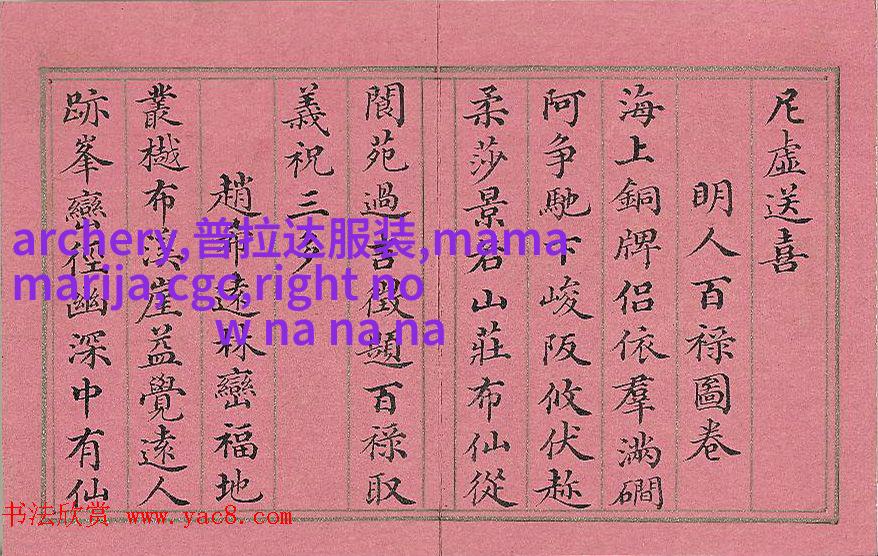 尼虛送喜
明人百祿圖卷
海上銅牌侣依羣滿磵
阿争馳下峻阪攸伏
柔莎景君山莊布仙從
閬苑過吉徵題百祿取
義祝三多
趙希遠秝巒福地
叢樾布溪崖益覺遠人
跡峯巒徑幽深中有仙
archery,普拉达服装,mama
marija,cgc,right no
w na na na
书法欣赏 www.yac8.com